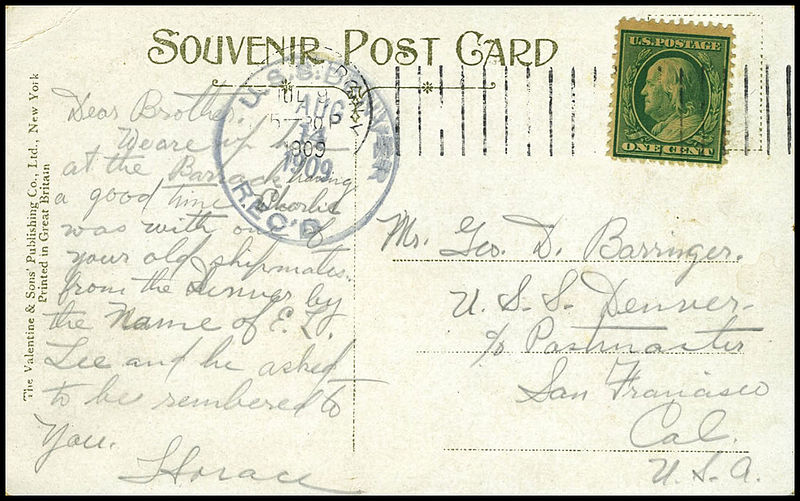 SOUVENIR POST CARD
U.S. POSTAGE
ONE CENT
U.S.S. DENVER
AUG
14
1909
REC'D
1909
The Valentine & Sons' Publishing Co., Ltd., New York
Printed in Great Britain
Dear Brother.
We are up here
at the Barracks having
a good time. Charlie
was with one of
your old shipmates.
from the Denver by
the Name of E. L.
Lee and he asked
to be rembered to
You.
Horace
Mr. Geo. D. Barringer.
U. S. S. Denver
c/o Postmaster
San Francisco
Cal.
U. S. A.